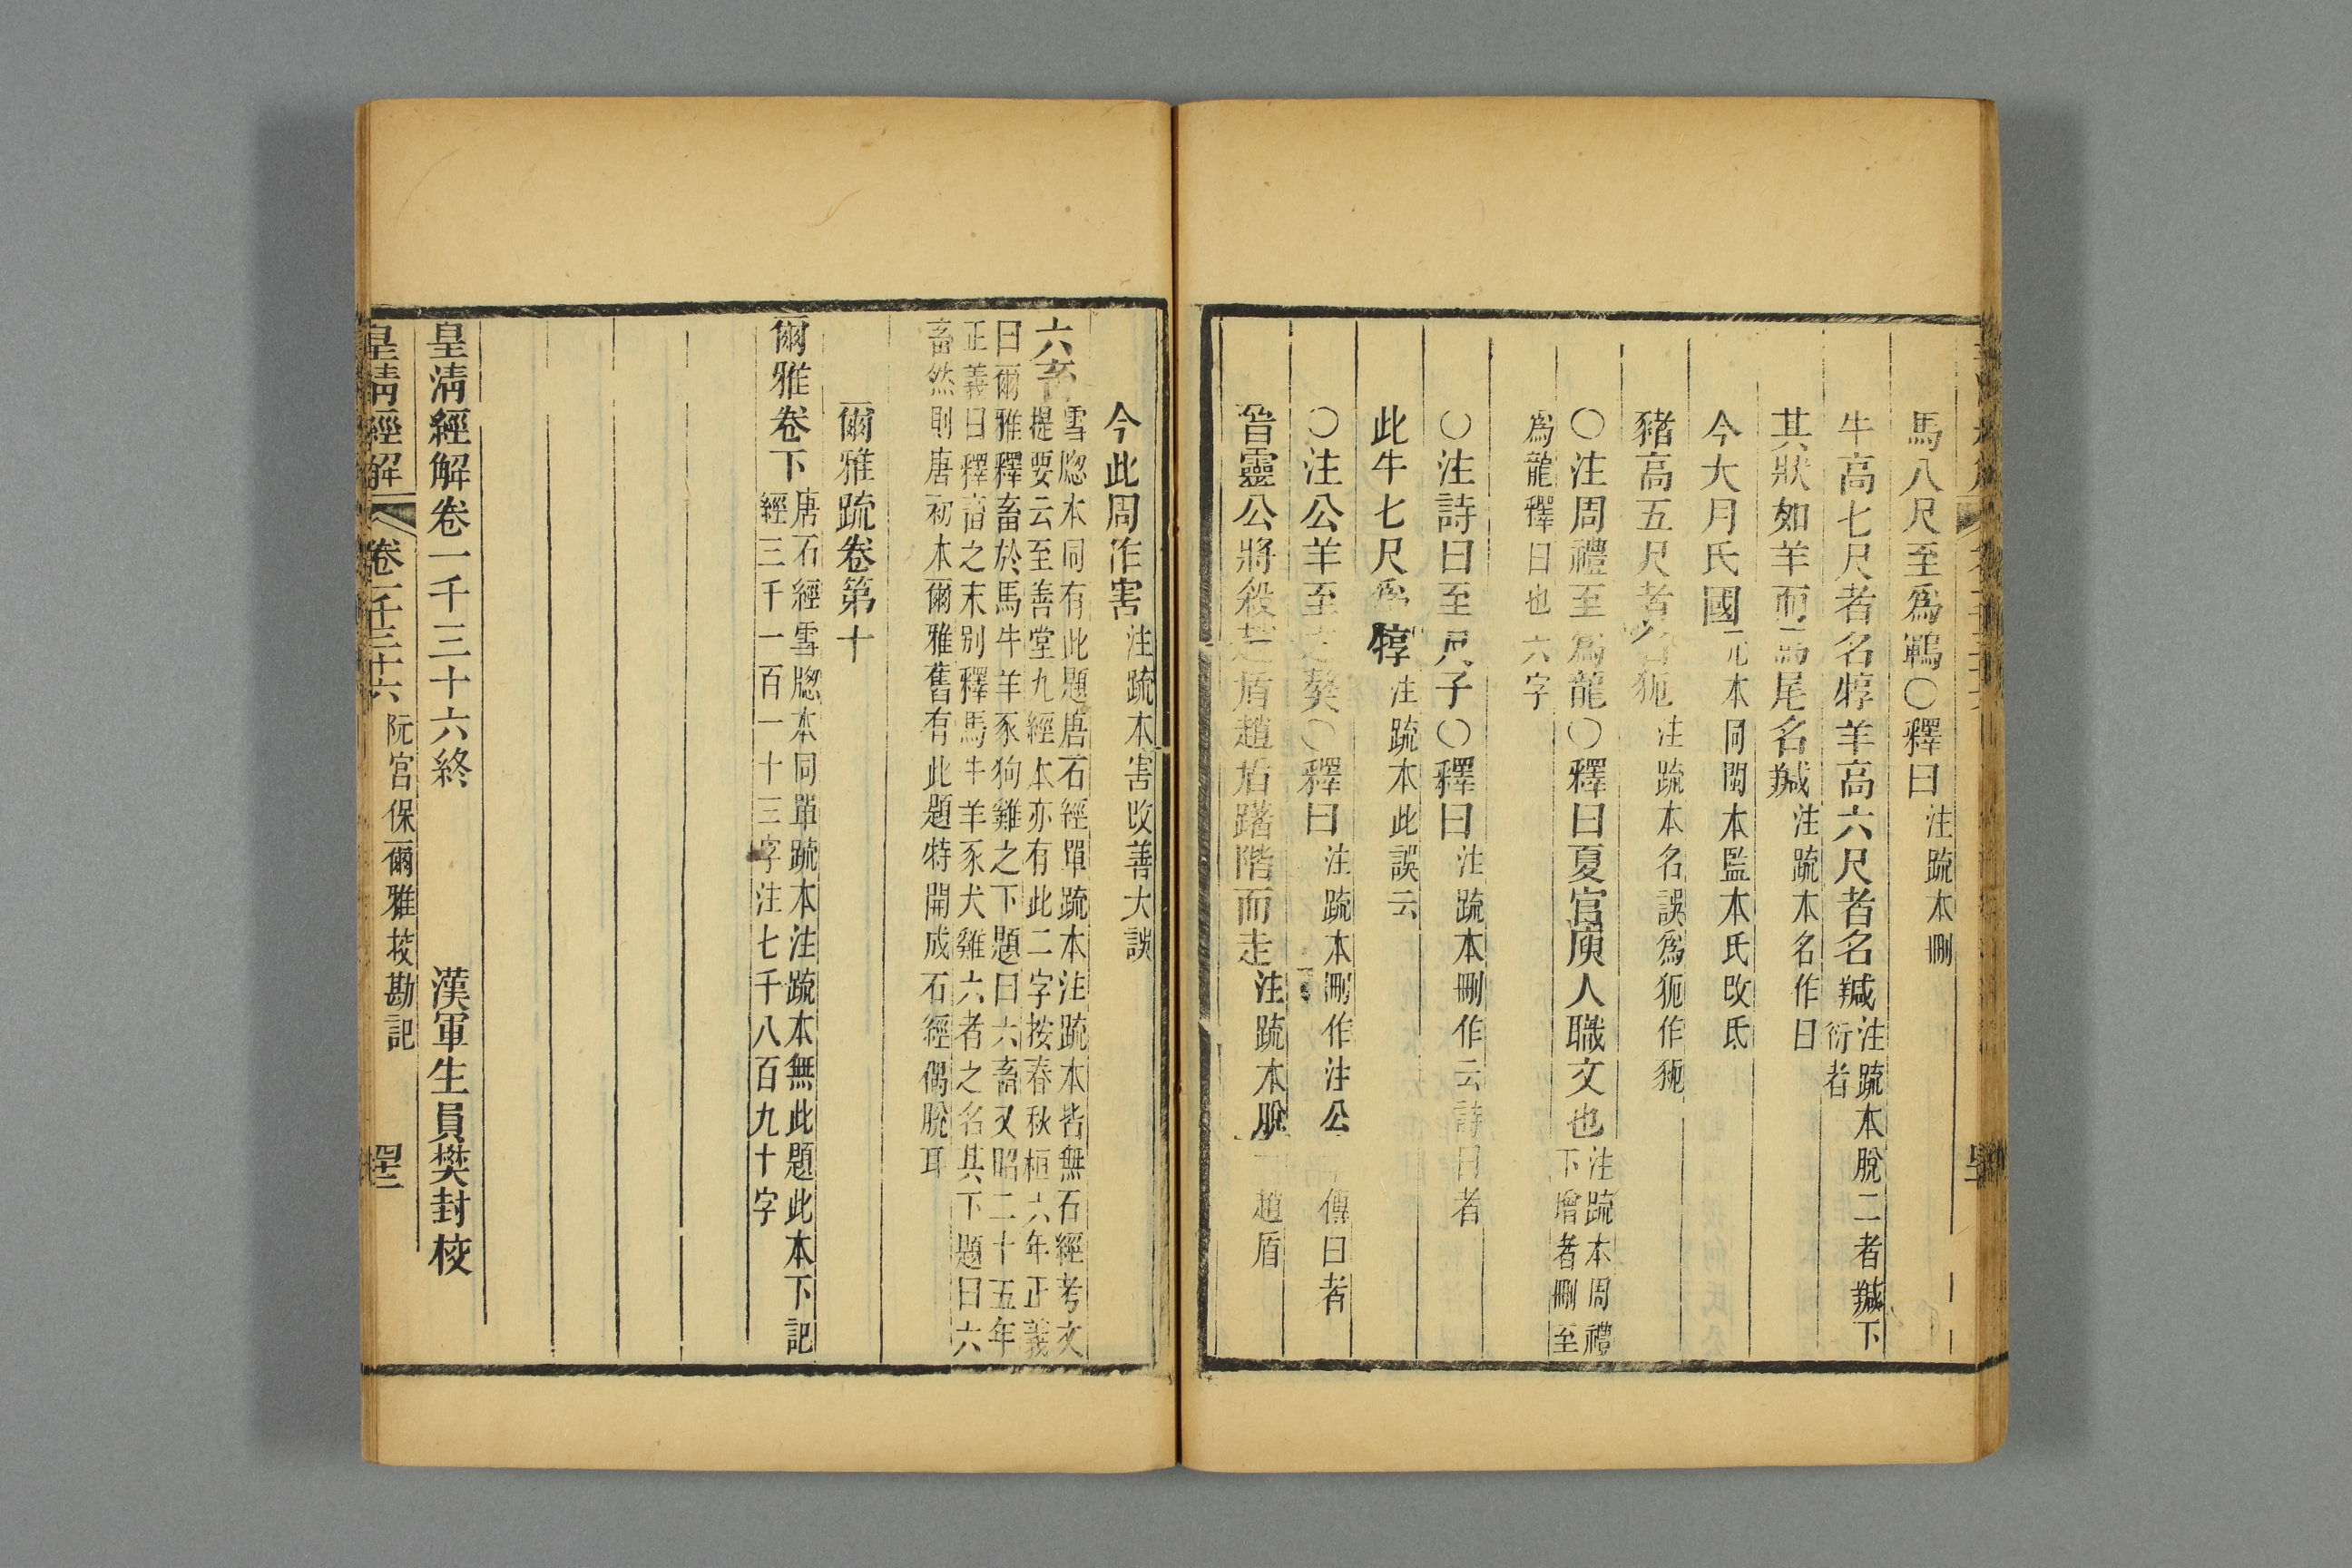 馬八尺至爲鶤〇釋曰注疏本刪
牛高七尺者名犉羊高六尺者名羬注疏本脫二者羬下
衍者
其狀如羊而馬尾名羬注疏本名作曰
今大月氏國元本同閩本監本氏改氐
豬高五尺者名豟注疏本名誤爲豟作豟
〇注周禮至爲龍〇釋曰夏官廋人職文也注疏本周禮
下增者刪至
爲龍釋曰也六字
〇注詩曰至尺子〇釋曰注疏本刪作云詩曰者
此牛七尺爲犉注疏本此誤云
〇注公羊至之獒〇釋曰注疏本刪作注公傳曰者
晉靈公將殺趙盾趙盾躇階而走注疏本脫趙盾
今此周作害注疏本害改善大誤
六畜雪牕本同有此題唐石經單疏本注疏本皆無石經考文
提要云至善堂九經本亦有此二字按春秋桓六年正義
曰爾雅釋畜於馬牛羊豕狗雞之下題曰六畜又昭二十五年
正義曰釋畜之末别釋馬牛羊豕犬雞六者之名其下題曰六
畜然則唐初本爾雅舊有此題特開成石經偶脫耳
爾雅疏卷第十
爾雅卷下唐石經雪牕本同單疏本注疏本無此題此本下記
經三千一百一十三字注七千八百九十字
皇清經解卷一千三十六終　漢軍生員樊封校
皇清經解　卷一千三十六　阮宮保爾雅挍勘記